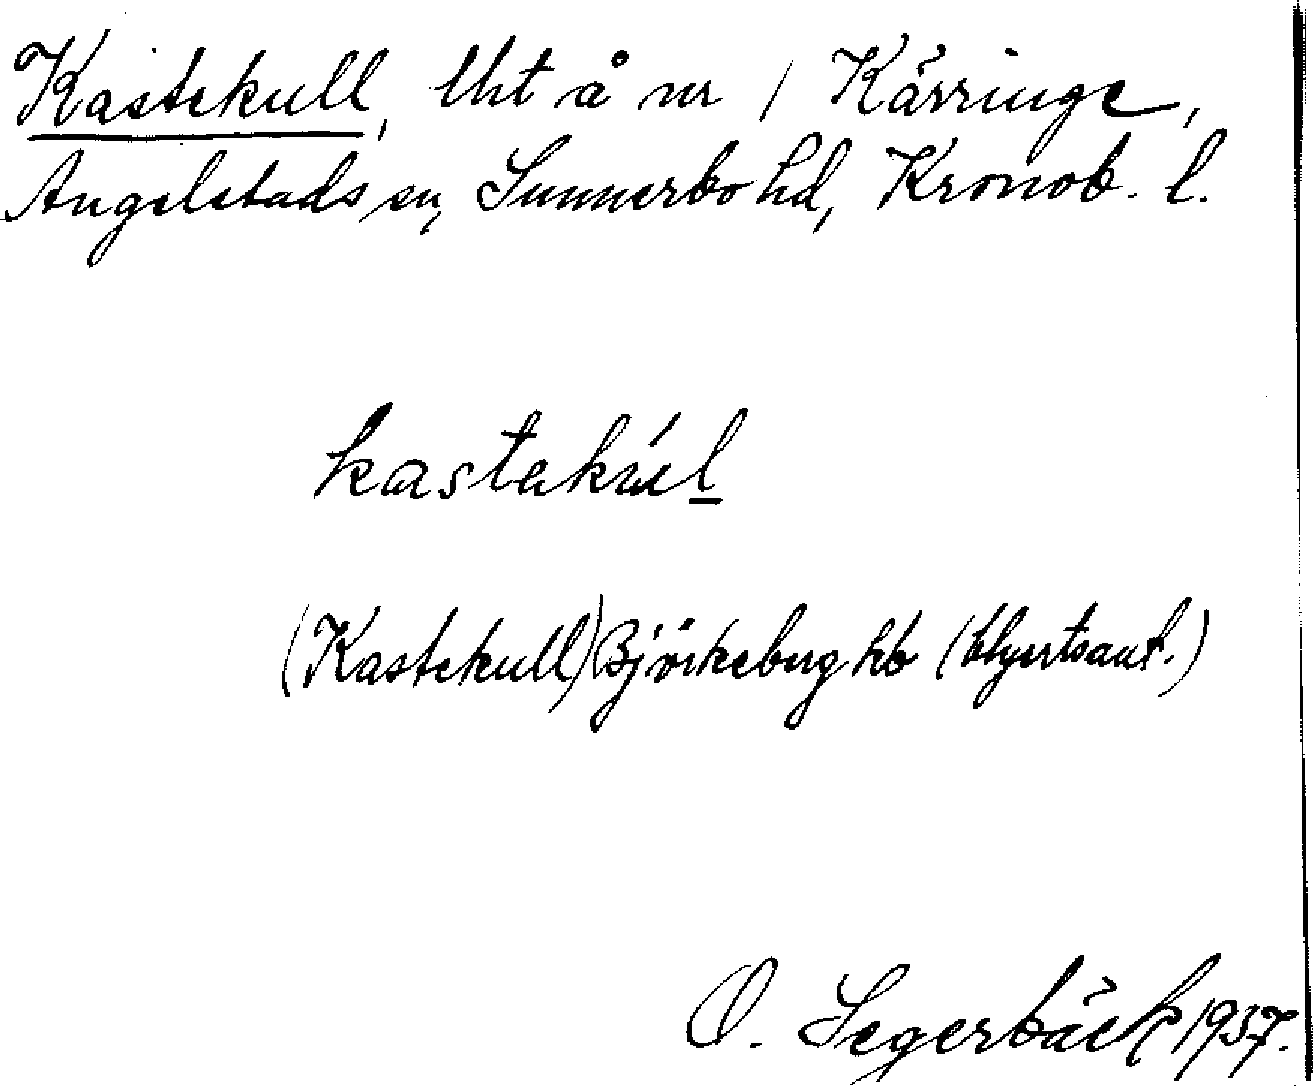 Kastekull, lht å nr 1 Kärringe,
Angelstads sn, Sunnerbo hd, Kronob. l.
kastakúl
(Kastekull) Björkeberg hb (blyertsant.)
O. Segerbäck 1937.